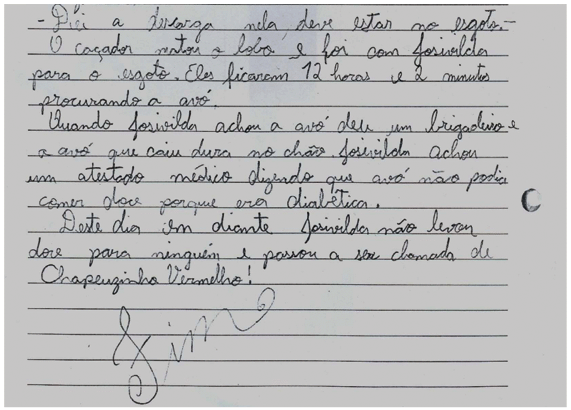 - Dei a descarga nela, deve estar no esgoto. -
O caçador matou o lobo e foi com Josivilda
para o esgoto. Eles ficaram 12 horas e 2 minutos
procurando a avó.
Quando Josivilda achou a avó deu um brigadeiro e
a avó que caiu dura no chão. Josivilda achou
um atestado médico dizendo que avó não podia
comer doce porque era diabética.
Deste dia em diante Josivilda não levou
doce para ninguém e passou a ser chamada de
Chapeuzinho Vermelho!
Fim